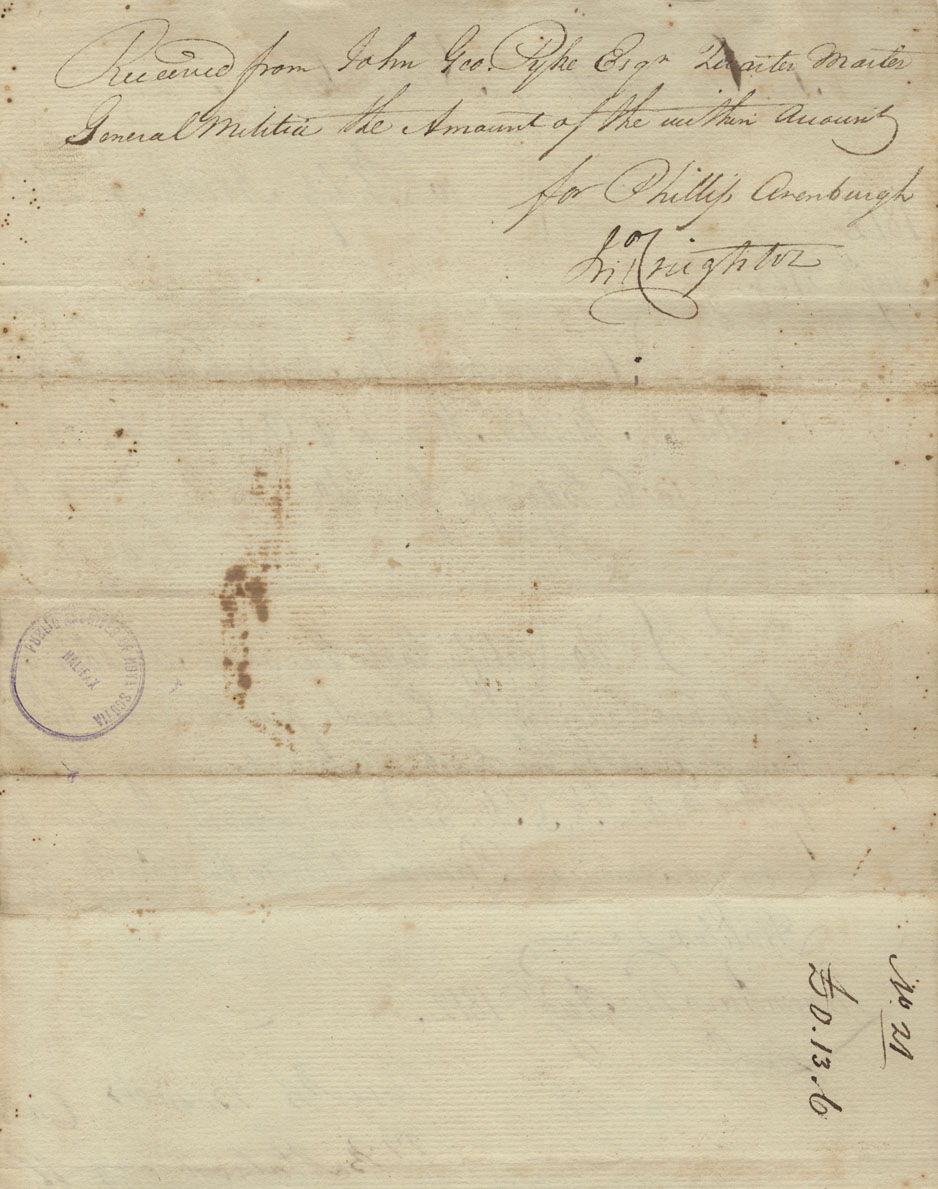 Received from John Geo. Pyke Esqr Quarter Master
General Militia the Amount of the within Account
for Phillip Arenburgh
Jno Creighton
PUBLIC ARCHIVES OF NOVA SCOTIA
HALIFAX
No. 21
£0.13.6